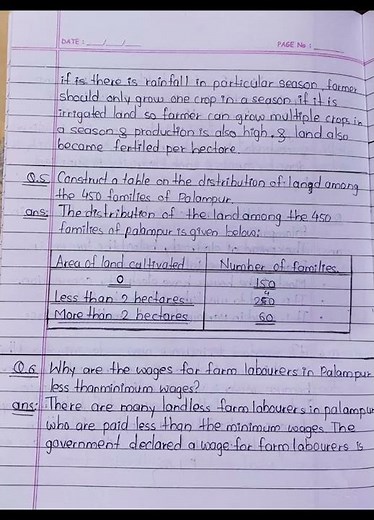 DATE: __/__/__
PAGE No:
if is there is rainfall in particular season, farmer
should only grow one crop in a season if it is
irrigated land so farmer can grow multiple crops in
a season & production is also high. & land also
become fertiled per hectore.
Q.5 Construct a table on the distribution of land among
the 450 families of Palampur.
ans: The distribution of the land among the 450
families of palampur is given below:
Area of land caltivated Number of families.
0 150
Less than 2 hectares 240
More than 2 hectares 60
Q.6 Why are the wages for farm labourers in Palampur
less thanminimum wages?
ans: There are many landless farm labourers in palampur
who are paid less than the minimum wages The
government declared a wage for farm labourers is